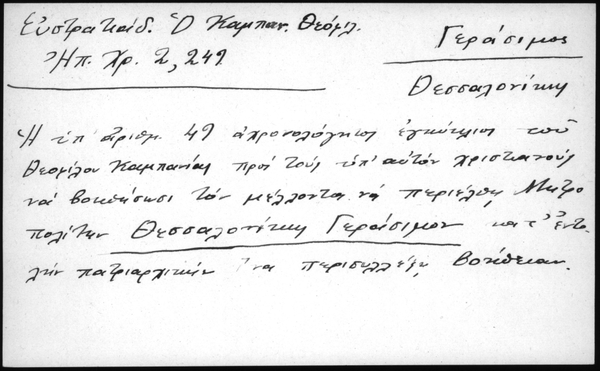 Εὐστρατιάδ. Ὁ Καμπαν. Θεόφιλ.
Ἠπ. Χρ. 2, 249
Γεράσιμος
Θεσσαλονίκης
Ἡ ὑπ' ἀριθμ. 49 ἀχρονολόγητος ἐγκύκλιος τοῦ
Θεοφίλου Καμπανίας πρὸς τοὺς ὑπ' αὐτὸν χριστιανοὺς
νὰ βοηθήσωσι τὸν μέλλοντα νὰ περιέλθῃ Μητρο
πολίτην Θεσσαλονίκης Γεράσιμον κατ' ἐντο
λὴν πατριαρχικὴν ἵνα περισυλλέξῃ βοήθειαν.